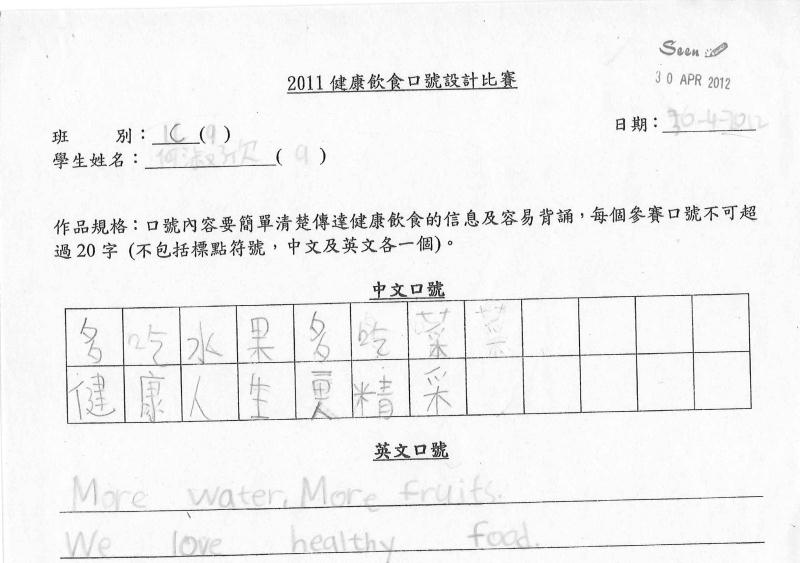 Seen
30 APR 2012
2011 健康飲食口號設計比賽
班 別：1C (9)
日期：30-4-2012
學生姓名：何淑欣 (9)
作品規格：口號內容要簡單清楚傳達健康飲食的信息及容易背誦，每個參賽口號不可超
過 20 字 (不包括標點符號，中文及英文各一個)。
中文口號
多吃水果多吃菜菜
健康人生更精采
英文口號
More water, More fruits.
We love healthy food.